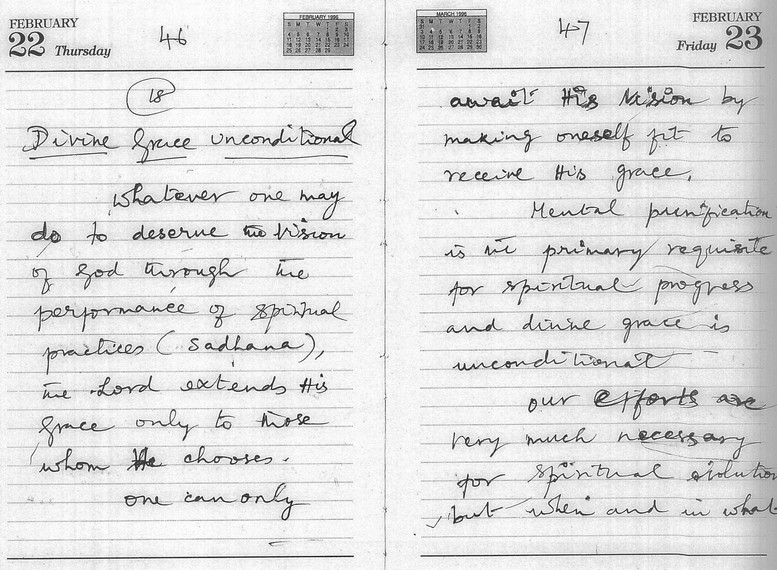 FEBRUARY
22 Thursday
46
FEBRUARY 1996
18
Divine Grace unconditional
whatever one may
do to deserve the vision
of God through the
performance of spiritual
practices (Sadhana),
the Lord extends His
grace only to those
whom He chooses.
one can only
47
MARCH 1996
FEBRUARY
Friday 23
await His Vision by
making oneself fit to
receive His grace.
Mental purification
is the primary requisite
for spiritual progress
and divine grace is
unconditional
our efforts are
very much necessary
for spiritual evolution
but when and in what